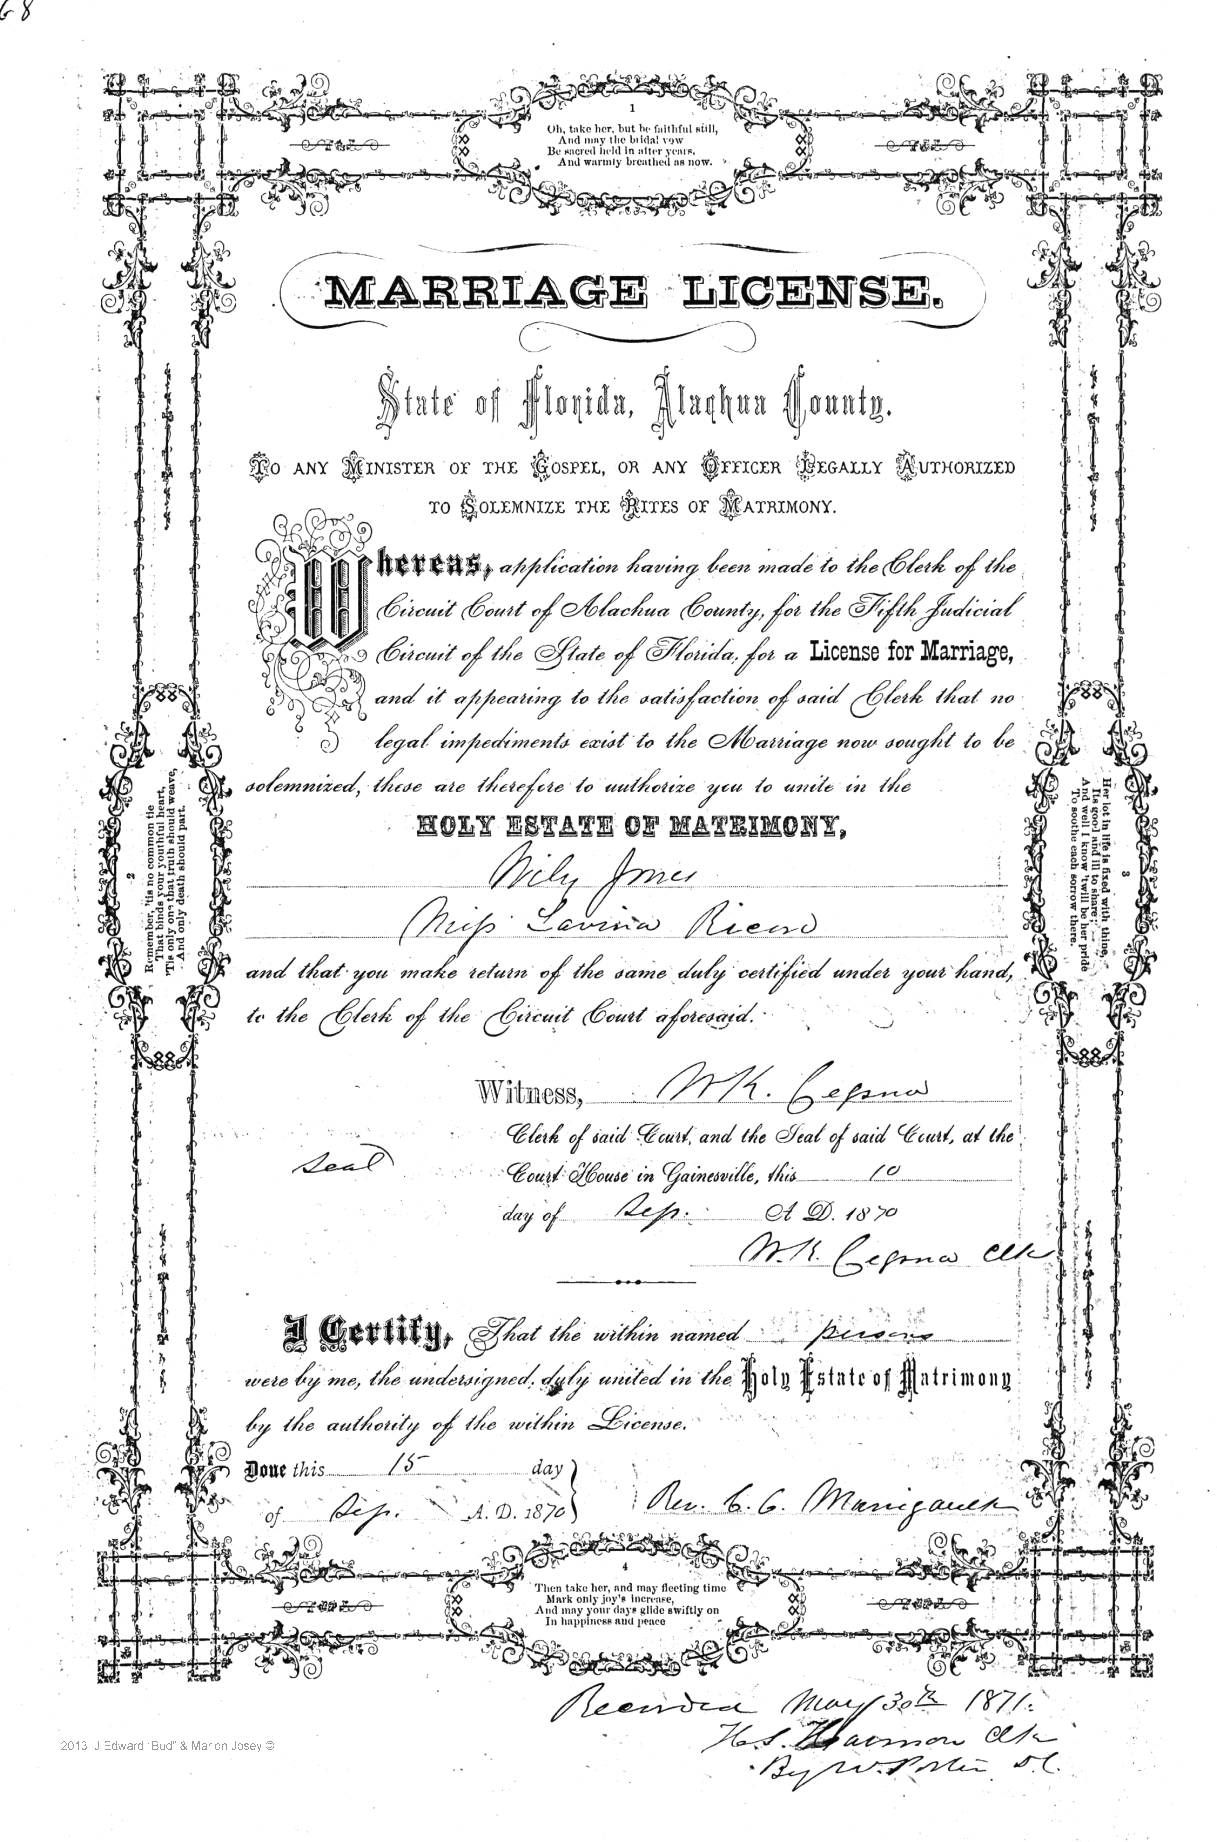 68
1
Oh, take her, but be faithful still,
And may the bridal vow
Be sacred held in after years,
And warmly breathed as now.
MARRIAGE LICENSE.
State of Florida, Alachua County.
TO ANY MINISTER OF THE GOSPEL, OR ANY OFFICER LEGALLY AUTHORIZED
TO SOLEMNIZE THE RITES OF MATRIMONY.
Whereas, application having been made to the Clerk of the
Circuit Court of Alachua County, for the Fifth Judicial
Circuit of the State of Florida, for a License for Marriage,
and it appearing to the satisfaction of said Clerk that no
legal impediments exist to the Marriage now sought to be
solemnized, these are therefore to authorize you to unite in the
HOLY ESTATE OF MATRIMONY,
Wily Jones
Miss Lavinia
and that you make return of the same duly certified under your hand,
to the Clerk of the Circuit Court aforesaid.
2
Remember, 'tis no common tie
That binds your youthful heart,
'Tis only one that truth should weave,
And only death should part.
3
Her lot in life is fixed with thine,
Its good and ill to share,
And well I know 'twill be her pride
To soothe each sorrow there.
Witness, W.K. Cessna
Clerk of said Court, and the Seal of said Court, at the
Seal
Court House in Gainesville, this 10
day of Sep. A D. 1870
W.K. Cessna Clk
I Certify, That the within named persons
were by me, the undersigned, duly united in the Holy Estate of Matrimony
by the authority of the within License.
Done this 15 day
of Sep. A. D. 1870
Rev. C. C. Manigault
4
Then take her, and may fleeting time
Mark only joy's increase,
And may your days glide swiftly on
In happiness and peace
Recorded May 30th 1871.
H.S. Harmon Clk
By W. Porter D.C.
2013 J Edward "Bud" & Marion Josey ©